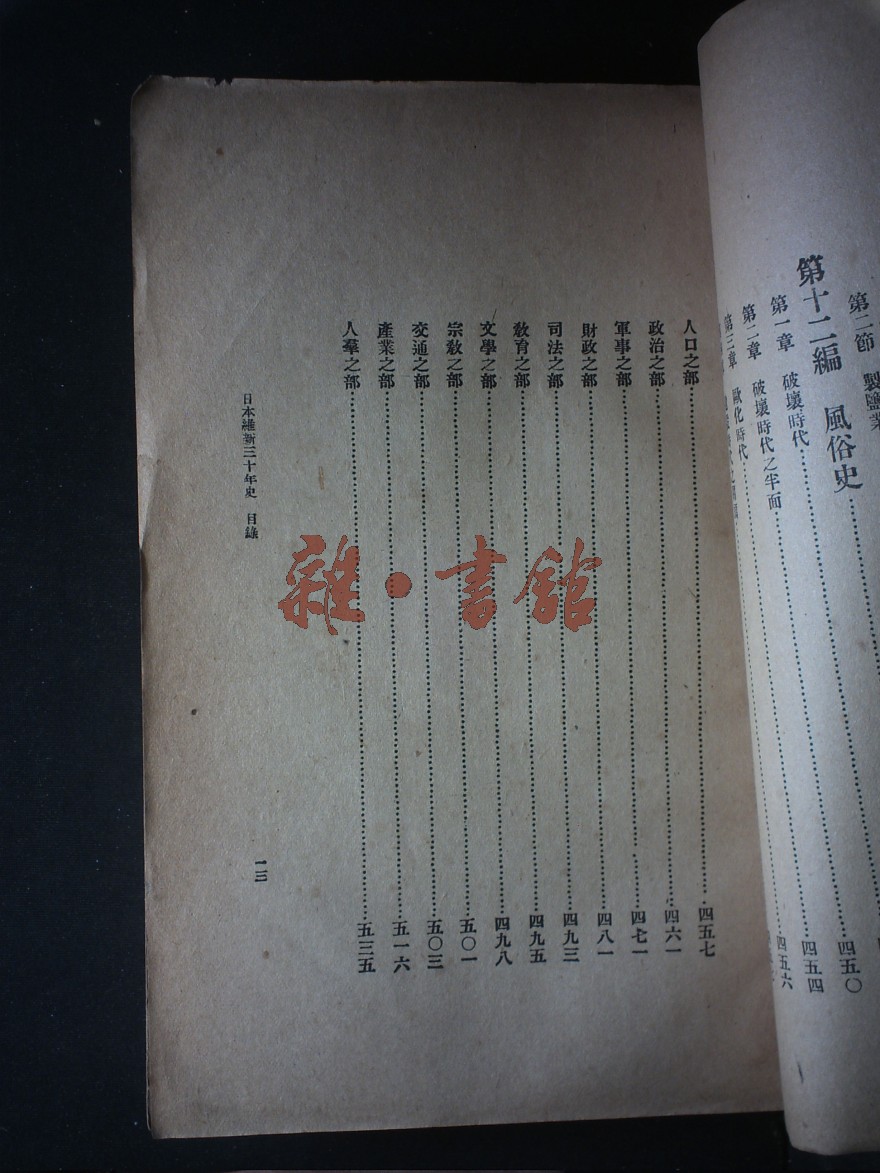 第二節 製鹽業
第十二編 風俗史
四五〇
第一章 破壞時代
四五四
第二章 破壞時代之半面
四五六
第三章 歐化時代
人口之部 四五七
政治之部 四六一
軍事之部 四七一
財政之部 四八一
司法之部 四九三
敎育之部 四九五
文學之部 四九八
宗敎之部 五〇一
交通之部 五〇三
產業之部 五一六
人羣之部 五三五
日本維新三十年史 目錄
一三
雜·書館